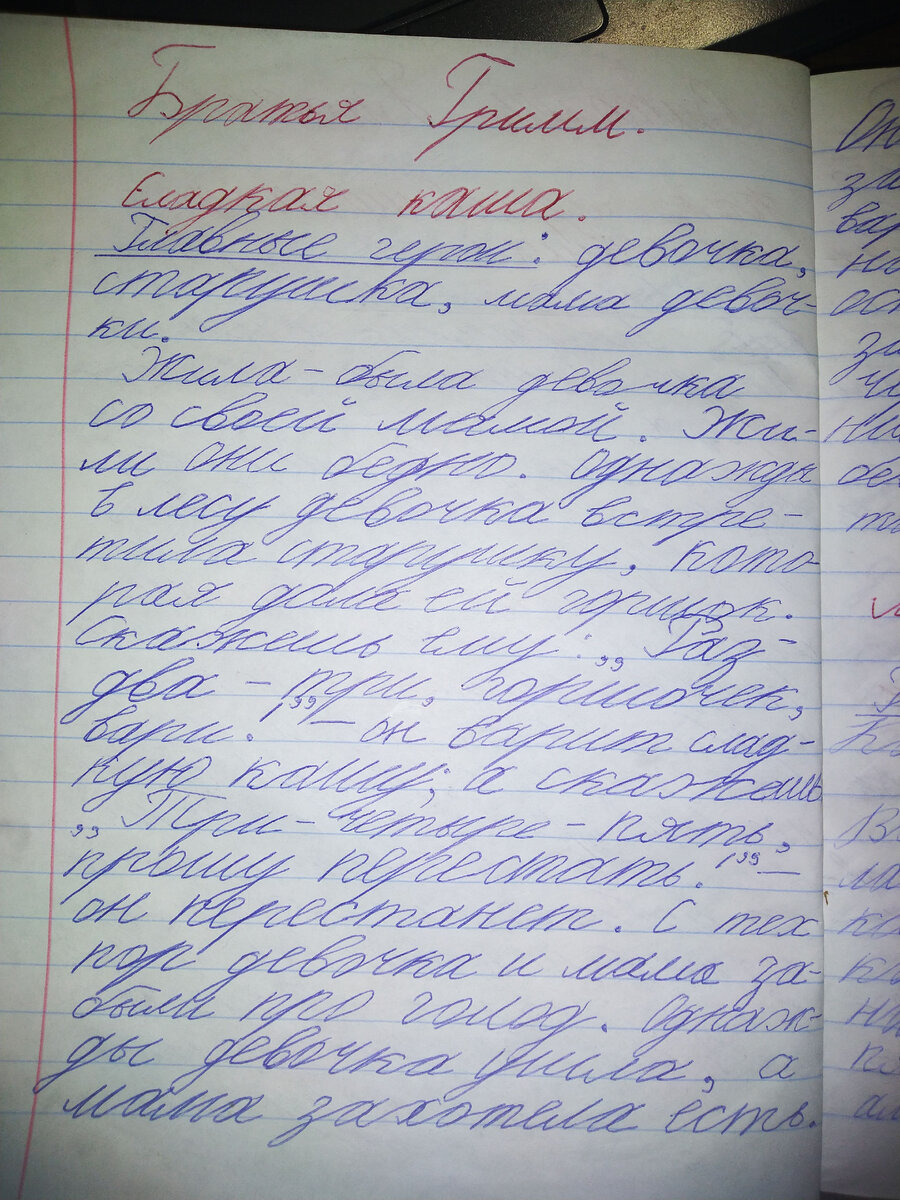 Братья Гримм.
Сладкая каша.
Главные герои: девочка,
старушка, мама девоч-
ки.
Жила-была девочка
со своей мамой. Жи-
ли они бедно. Однажды
в лесу девочка встре-
тила старушку, кото-
рая дала ей горшок.
Скажешь ему: „Раз-
два-три, горшочек,
вари!” – он варит слад-
кую кашу; а скажешь
„Три-четыре-пять,
прошу перестать!” –
он перестанет. С тех
пор девочка и мама за-
были про голод. Однаж-
ды девочка ушла, а
мама захотела есть.
Он
за
вар
на
ост